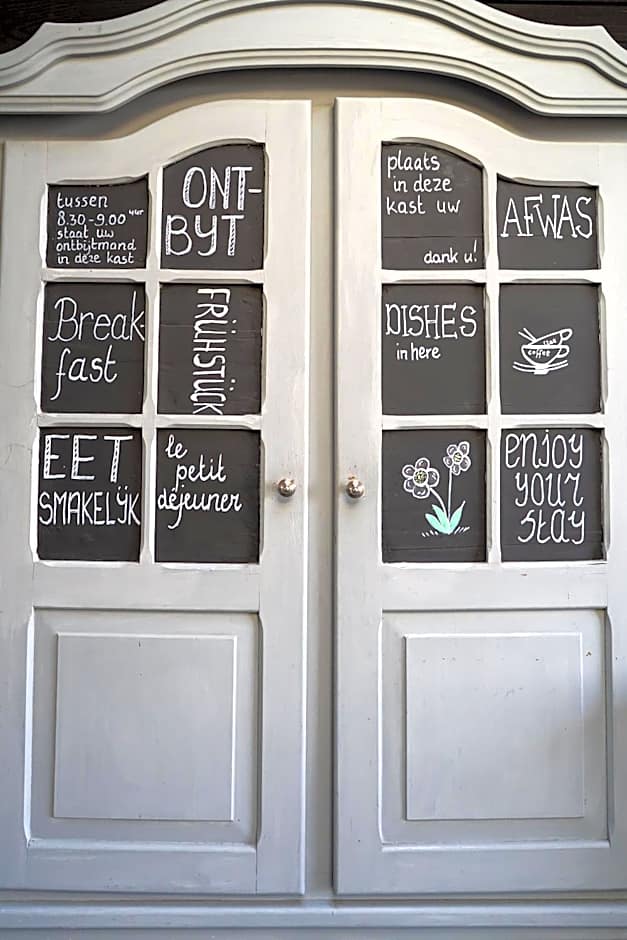 tussen
8.30-9.00 uur
staat uw
ontbijtmand
in deze kast
ONT-
BYT
Break-
fast
FRÜHSTÜCK
EET
SMAKELYK
le
petit
déjeuner
plaats
in deze
kast uw
dank u!
AFWAS
DISHES
in here
coffee
enjoy
your
stay